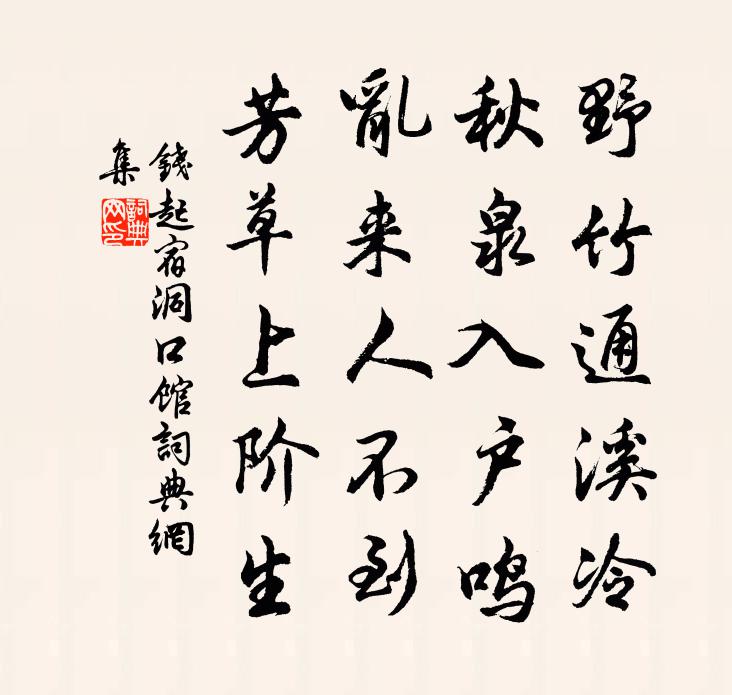 野竹通溪冷
秋泉入户鸣
亂来人不到
芳草上阶生
錢起宿洞口館詞典網
集
詞典
网印